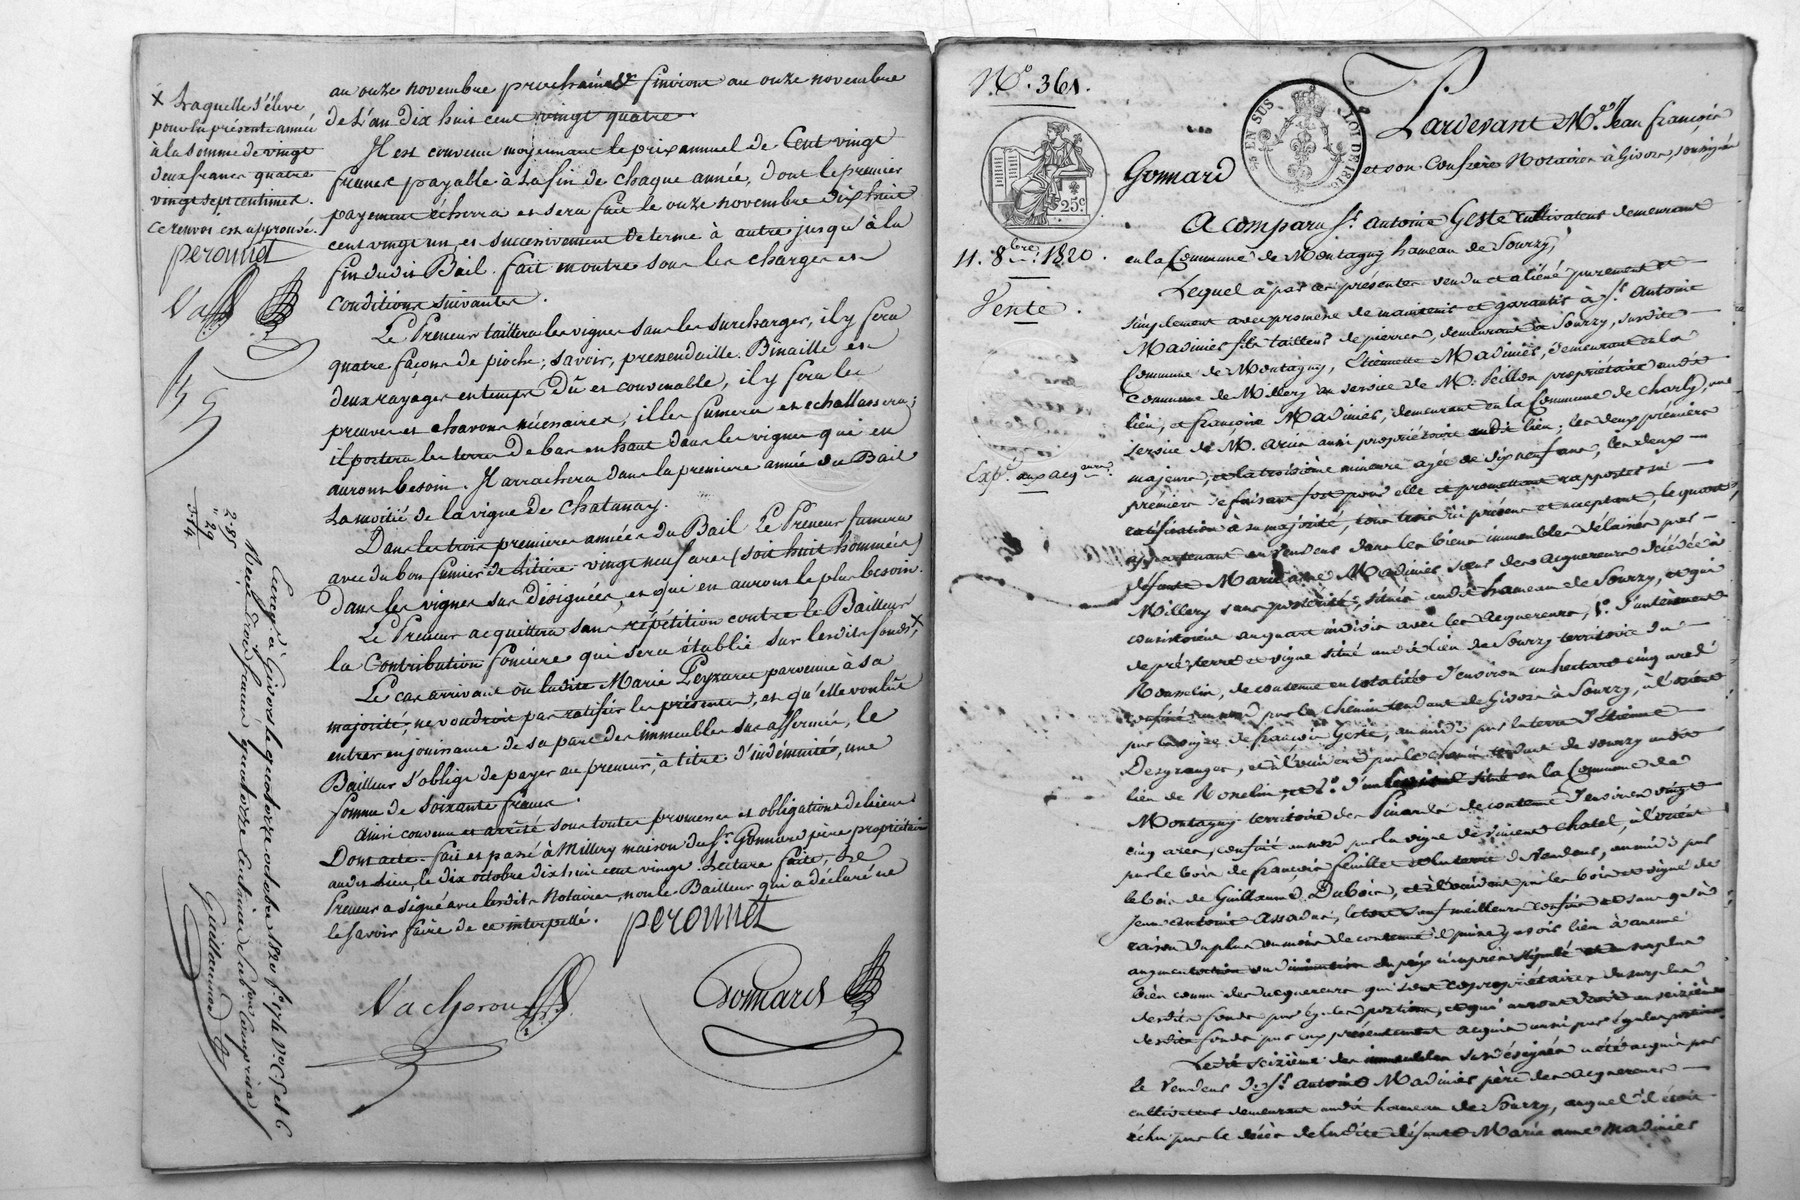 au onze novembre prochain & finiront au onze novembre
de L'an Dix huit cent vingt quatre.
Il est convenu moyennant le prix annuel de Cent vingt
francs payable à la fin de chaque année, dont le premier
payement écherra et sera fait le onze novembre dix huit
cent vingt un, et successivement de terme à autre jusqu'à la
fin dudit Bail. fait en outre sous les charges et
conditions suivantes.
Le Preneur taillera les vignes sans les surcharger, il y fera
quatre façons de pioche; savoir, Binaille et
deux rayages en temps dû et convenable, il y fera les
preuves et chavons nécessaires, il les fumera et echallassera;
il portera les terres de bas en haut dans les vignes qui en
auront besoin. Il arrachera dans la premiere année du Bail
La moitié de la vigne de Chatanay.
Dans les trois premieres années du Bail Le Preneur fumera
avec du bon fumier de Litiere vingt neuf ares (soit huit hommées)
dans les vignes sus désignées, et qui en auront le plus besoin.
Le Preneur acquittera sans répétition contre le Bailleur
la Contribution foncière qui sera établie sur lesdits fonds, x
Le cas arrivant où ladite Marie Peyzaret parvenue à sa
majorité, ne voudroit pas ratifier les présentes, et qu'elle voulût
entrer en jouissance de sa part des immeubles sus affermés, le
Bailleur s'oblige de payer au preneur, à titre d'indémnité, une
somme de soixante francs.
Ainsi convenu et arrêté sous toutes promesses et obligations de biens
Dont acte. fait et passé à Millery maison du Sr. Gonnard père propriétaire
audit Lieu, le dix octobre dix huit cent vingt. Lecture faite, Le
Preneur a signé avec lesdits Notaires, non le Bailleur qui a déclaré ne
le savoir faire de ce interpellé.
peronnet
Vacheron
Gonnard
x Laquelle s'élève
pour la présente année
à la somme de vingt
deux francs quatre
vingt sept centimes.
Ce renvoi est approuvé.
peronnet
Va
2 85
" 29
3.14
Enreg. à Givors le quatorze octobre 1820 fo. 174 Vo. C. 5 et 6
Reçu deux francs quatorze centimes
Guillaumod
No. 361.
25c
25 EN SUS
LOI DE 1816
11. 8bre. 1820.
Vente.
Expn. aux acqureurs.
Pardevant Me. Jean françois
Gonnard et son Confrère Notaires à Givors soussignés
A comparu Sr. Antoine Geste cultivateur demeurant
en la Commune de Montagny hameau de Sourzy,
Lequel a par ces présentes vendu et aliéné purement et
simplement avec promesse de maintenir et garantir à Sr. Antoine
Madinier fils tailleur de pierres, demeurant à Sourzy, susdite
Commune de Montagny, Etiennette Madinier, demeurant en la
Commune de Millery au service de M. Peillon propriétaire audit
lieu, et françoise Madinier, demeurant en la Commune de Charly, au
service de M. aussi propriétaire audit lieu; les deux premiers
majeurs, et la troisième mineure agée de dix neuf ans, les deux
premiers se faisant fort pour elle et promettant rapporter sa
ratification à sa majorité, tous trois ici présents et acceptant, le quart
appartenant au vendeur dans les biens immeubles délaissés par
défunte Marie anne Madinier sœur des acquereurs décédée à
Millery sans postérité, situés audit hameau de Sourzy, et qui
consistoient au quart indivis avec les acquereurs, 1o. d'un tènement
de pré, terre et vigne situé audit lieu de Sourzy territoire du
Rousselin, de contenue en totalité d'environ un hectare cinq ares
confiné au nord par le chemin tendant de Givors à Sourzy, à l'orient
par la vigne de françois Geste, au midi par la terre d'Etienne
Desgranges, et à l'occident par le chemin tendant de Sourzy audit
lieu de et 2o. d'un situé en la Commune de
Montagny territoire des Pinardes de contenue d'environ vingt
cinq ares, confiné au nord par la vigne de Vincent Chatel, à l'orient
par le bois de françois feuillet et la terre du Vendeur, au midi par
le bois de Guillaume Dubois, et à l'occident par les bois et vigne de
jean antoine Assadas, le tout sauf meilleurs confins et sans qu'à
raison du plus ou moins de contenue il puisse y avoir lieu à aucune
augmentation ou diminution du prix ci après stipulé et au surplus
bien connu des acquereurs qui sont copropriétaires du surplus
desdits fonds par égales portions, et qui auront droit au seizième
desdits fonds par eux présentement acquis aussi par égales portions.
Ledit seizième des immeubles susdésignés a été acquis par
le Vendeur de Sr. antoine Madinier père des acquereurs
cultivateur demeurant audit hameau de Sourzy, auquel il étoit
échu par le décès de ladite défunte Marie anne Madinier